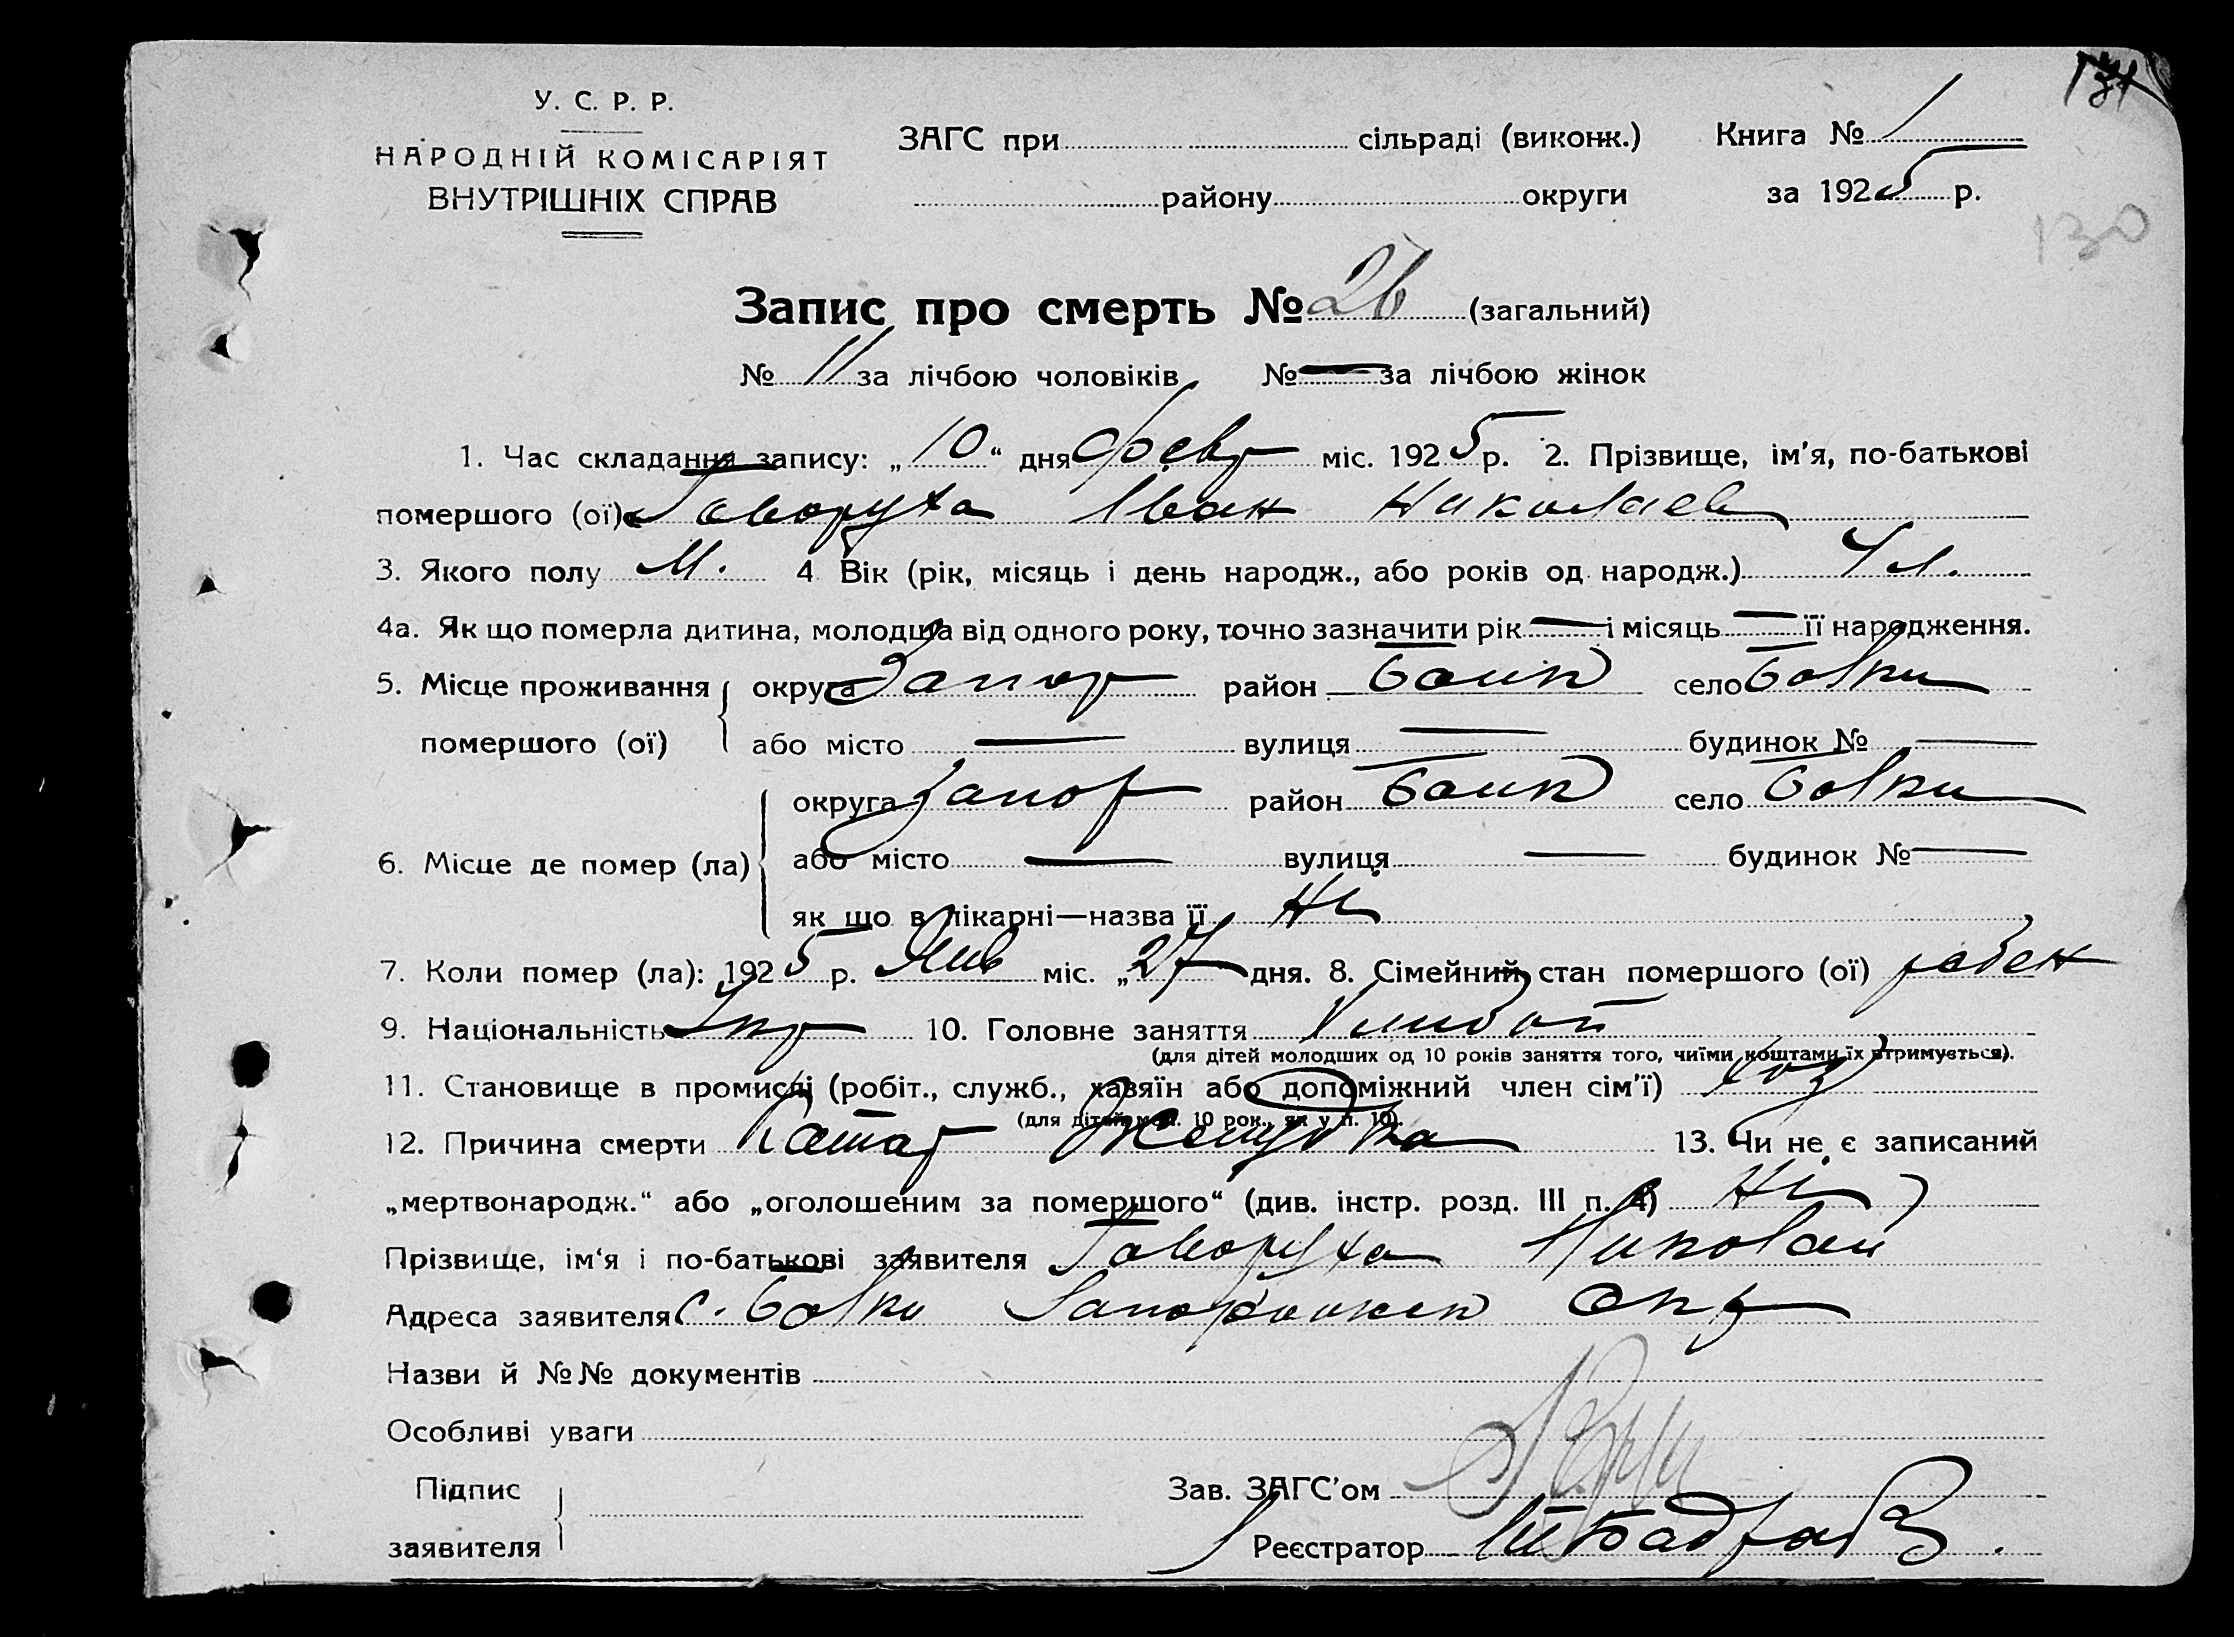 У. С. Р. Р.
НАРОДНІЙ КОМІСАРІЯТ
ВНУТРІШНІХ СПРАВ
ЗАГС при сільраді (виконк.) Книга № 1
району округи за 1925 р.
130
Запис про смерть № 26 (загальний)
№ 11 за лічбою чоловіків № — за лічбою жінок
1. Час складання запису: „10“ дня февр міс. 1925 р. 2. Прізвище, ім'я, по-батькові
помершого (ої) Говоруха Іван Николаев
3. Якого полу М. 4 Вік (рік, місяць і день народж., або років од народж.) 4 л.
4а. Як що померла дитина, молодша від одного року, точно зазначити рік — і місяць — її народження.
5. Місце проживання округа Запор район Балк село Балки
помершого (ої) або місто — вулиця — будинок № —
округа Запор район Балк село Балки
6. Місце де помер (ла) або місто — вулиця — будинок № —
як що в лікарні—назва її Ні
7. Коли помер (ла): 1925 р. Янв міс. „27 дня. 8. Сімейний стан помершого (ої) ребен
9. Національність Укр 10. Головне заняття Хлибоп
(для дітей молодших од 10 років заняття того, чиїми коштами їх втримується).
11. Становище в промислі (робіт., служб., хазяїн або допоміжний член сім'ї) хоз
(для дітей мол. 10 рок., як у п. 10).
12. Причина смерти Катар Желудка 13. Чи не є записаний
„мертвонародж.“ або „оголошеним за помершого“ (див. інстр. розд. III п. 4) Ні
Прізвище, ім'я і по-батькові заявителя Говоруха Николай
Адреса заявителя с. Балки Запорожск окр
Назви й №№ документів
Особливі уваги
Підпис Зав. ЗАГС'ом
заявителя Реєстратор